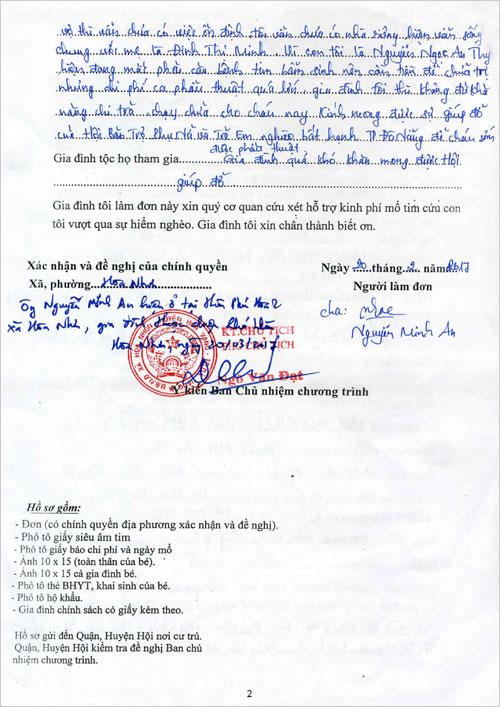 vợ thì vẫn chưa có việc ổn định, tôi vẫn chưa có nhà riêng, hiện vẫn sống
chung với mẹ là Đinh Thị Minh. Vì con tôi là Nguyễn Ngọc An Thy
hiện đang mắt phải căn bệnh tim bẩm sinh nên cần tiền để chữa trị
nhưng chi phí ca phẫu thuật quá lớn, gia đình tôi thì không đủ khả
năng chi trả, chạy chữa cho cháu nay. Kính mong được sự giúp đỡ
của Hội Bảo Trợ Phụ Nữ và Trẻ Em nghèo bất hạnh TP Đà Nẵng để cháu sớm
được phẫu thuật.
Gia đình tộc họ tham gia.......Gia đình quá khó khăn mong được Hội
giúp đỡ
Gia đình tôi làm đơn này xin quý cơ quan cứu xét hỗ trợ kinh phí mổ tim cứu con
tôi vượt qua sự hiểm nghèo. Gia đình tôi xin chân thành biết ơn.
Xác nhận và đề nghị của chính quyền
Xã, phường......Hòa Nhơn
Ngày 20 tháng 2 năm 2017
Người làm đơn
Ông Nguyễn Minh An hiện ở tại thôn Phú Hòa 2
xã Hòa Nhơn, gia đình thuộc diện khó khăn
Hòa Nhơn, ngày 20/03/2017
KT.CHỦ TỊCH
Ngô Văn Đạt
cha:
Nguyễn Minh An
Ý kiến Ban Chủ nhiệm chương trình
Hồ sơ gồm:
- Đơn (có chính quyền địa phương xác nhận và đề nghị).
- Phô tô giấy siêu âm tim
- Phô tô giấy báo chi phí và ngày mổ
- Ảnh 10 x 15 (toàn thân của bé).
- Ảnh 10 x 15 cả gia đình bé.
- Phô tô thẻ BHYT, khai sinh của bé.
- Phô tô hộ khẩu.
- Gia đình chính sách có giấy kèm theo.
Hồ sơ gửi đến Quận, Huyện Hội nơi cư trú.
Quận, Huyện Hội kiểm tra đề nghị Ban chủ
nhiệm chương trình.
2